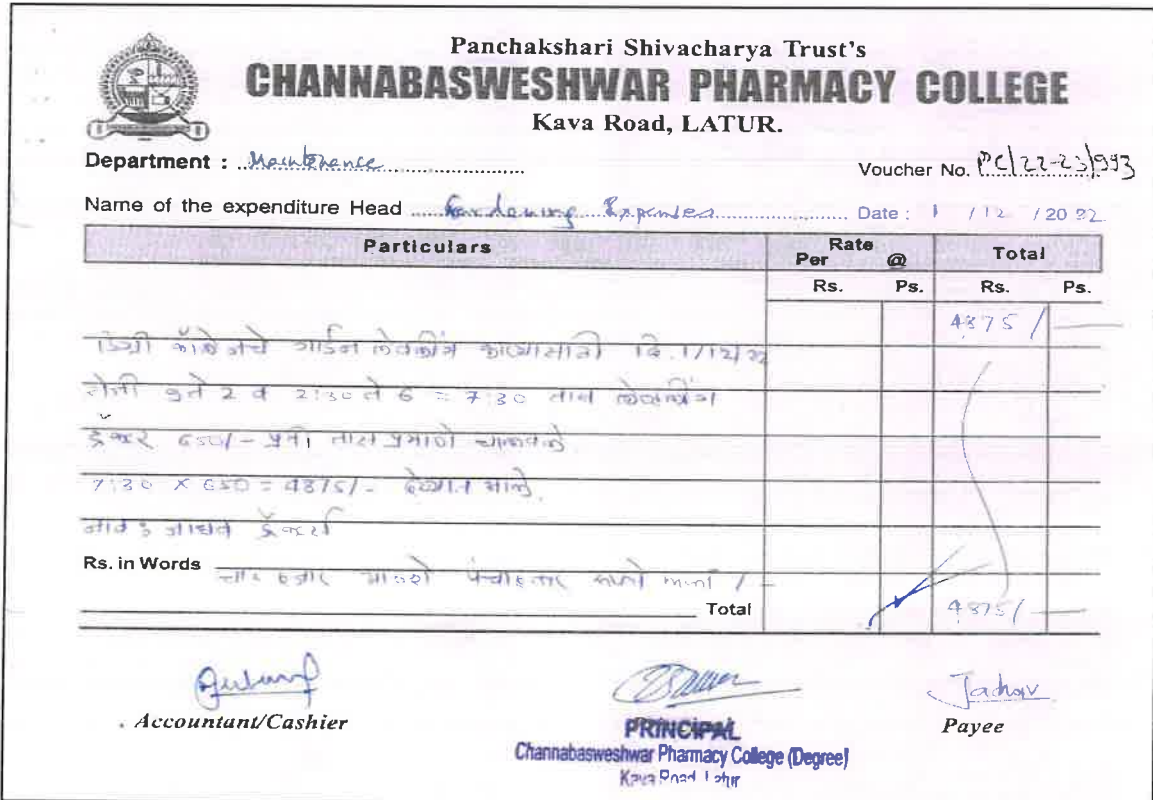 Panchakshari Shivacharya Trust's
CHANNABASWESHWAR PHARMACY COLLEGE
Kava Road, LATUR.
Department : Maintenance
Voucher No. PC/22-23/993
Name of the expenditure Head Gardening Expenses Date : 1 / 12 / 2022
Particulars Rate Per @ Total
Rs. Ps. Rs. Ps.
4875/—
डिग्री कॉलेजचे गार्डन लेवलींग कामासाठी दि. 1/12/22
रोजी 9 ते 2 व 2:30 ते 6 = 7:30 तास लेवलींग
ट्रॅक्टर 650/- प्रती तास प्रमाणे चालवले
7:30 X 650 = 4875/- देण्यात आले.
जाधव ट्रॅक्टर्स
Rs. in Words चार हजार आठशे पंचाहत्तर रुपये मात्र /-
Total 4875/—
Jadhav
Accountant/Cashier
PRINCIPAL
Channabasweshwar Pharmacy College (Degree)
Kava Road Latur
Payee